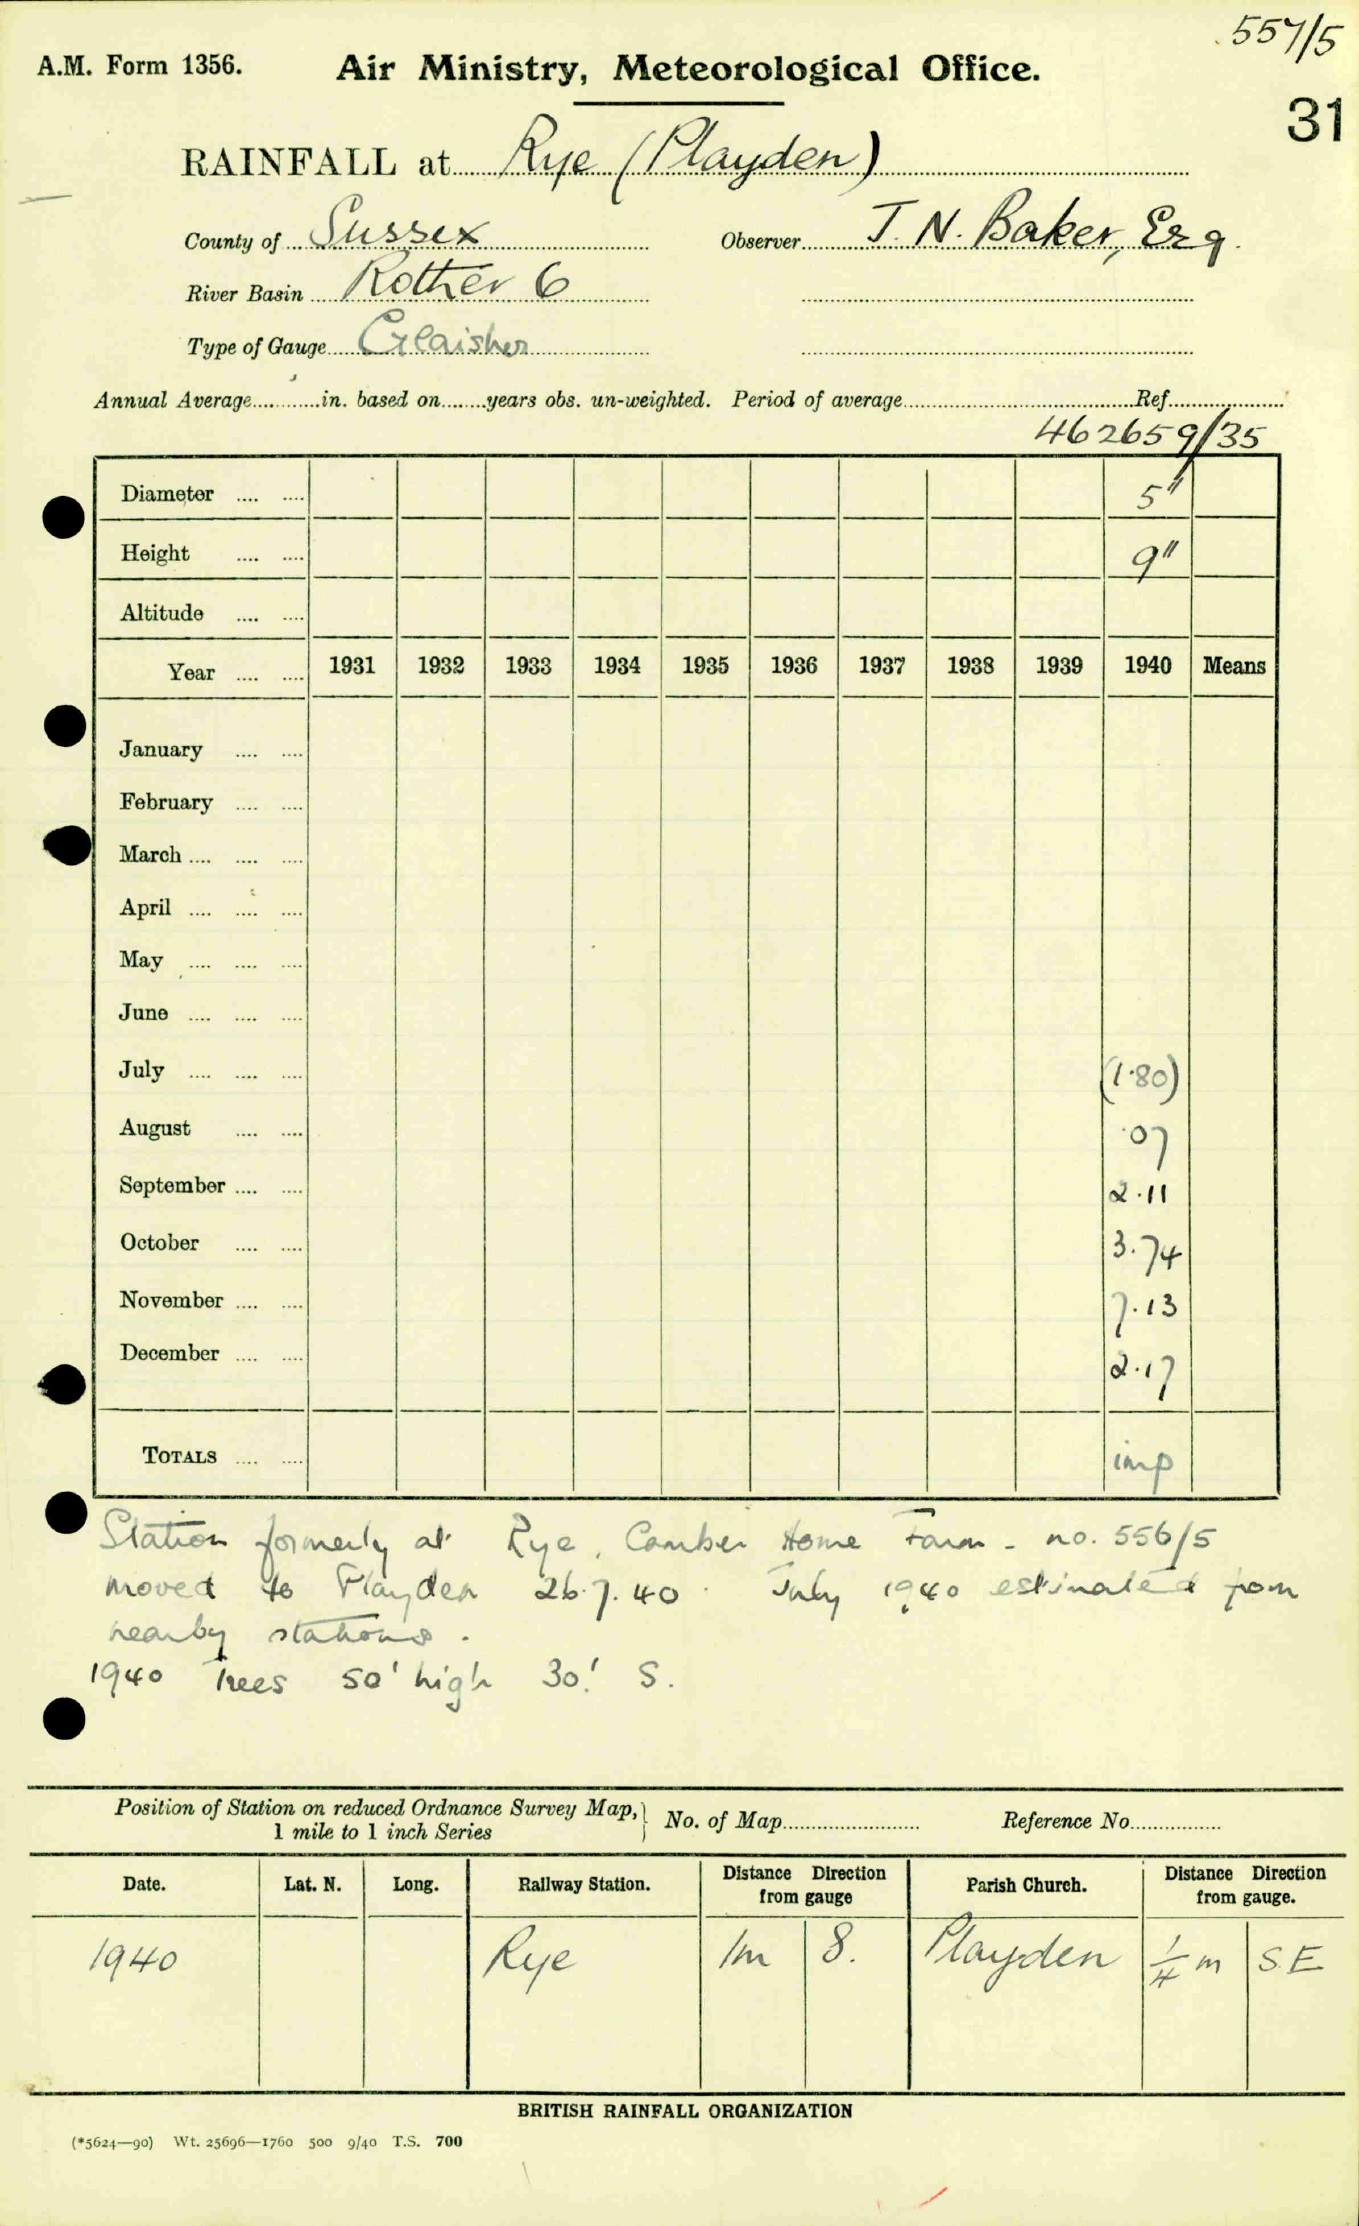 557/5
A.M. Form 1356. Air Ministry, Meteorological Office.
31
RAINFALL at Rye (Playden)
County of Sussex Observer J. N. Baker, Esq.
River Basin Rother 6
Type of Gauge Glaisher
Annual Average............in. based on........years obs. un-weighted. Period of average........................Ref.....................
462659/35
Diameter .... .... 5"
Height .... .... 9"
Altitude .... ....
Year .... .... 1931 1932 1933 1934 1935 1936 1937 1938 1939 1940 Means
January .... ....
February .... ....
March .... .... ....
April .... .... ....
May .... .... ....
June .... .... ....
July .... .... .... (1.80)
August .... .... .07
September .... .... 2.11
October .... .... 3.74
November .... .... 7.13
December .... .... 2.17
TOTALS .... .... imp
Station formerly at Rye, Camber Home Farm - no. 556/5
moved to Playden 26.7.40. July 1940 estimated from
nearby stations.
1940 Trees 50' high 30' S.
Position of Station on reduced Ordnance Survey Map, } No. of Map........................ Reference No................
1 mile to 1 inch Series
Date. Lat. N. Long. Railway Station. Distance Direction from gauge Parish Church. Distance Direction from gauge.
1940 Rye 1m S. Playden 1/4 m SE
BRITISH RAINFALL ORGANIZATION
(*5624—90) Wt. 25696—1760 500 9/40 T.S. 700